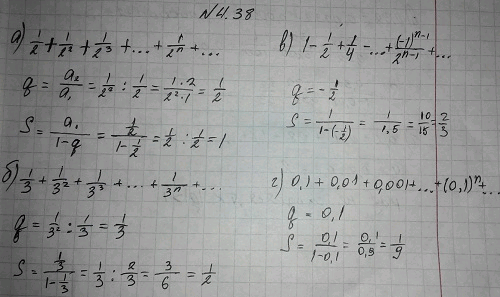 №4.38
а) 1/2 + 1/2² + 1/2³ + ... + 1/2ⁿ + ...
q = a₂/a₁ = 1/2² : 1/2 = 1·2/2²·1 = 1/2
S = a₁/(1-q) = (1/2)/(1-1/2) = 1/2 : 1/2 = 1
б) 1/3 + 1/3² + 1/3³ + ... + 1/3ⁿ + ...
q = 1/3² : 1/3 = 1/3
S = (1/3)/(1-1/3) = 1/3 : 2/3 = 3/6 = 1/2
в) 1 - 1/2 + 1/4 - ... + (-1)ⁿ⁻¹/2ⁿ⁻¹ + ...
q = -1/2
S = 1/(1-(-1/2)) = 1/1,5 = 10/15 = 2/3
г) 0,1 + 0,01 + 0,001 + ... + (0,1)ⁿ + ...
q = 0,1
S = 0,1/(1-0,1) = 0,1/0,9 = 1/9